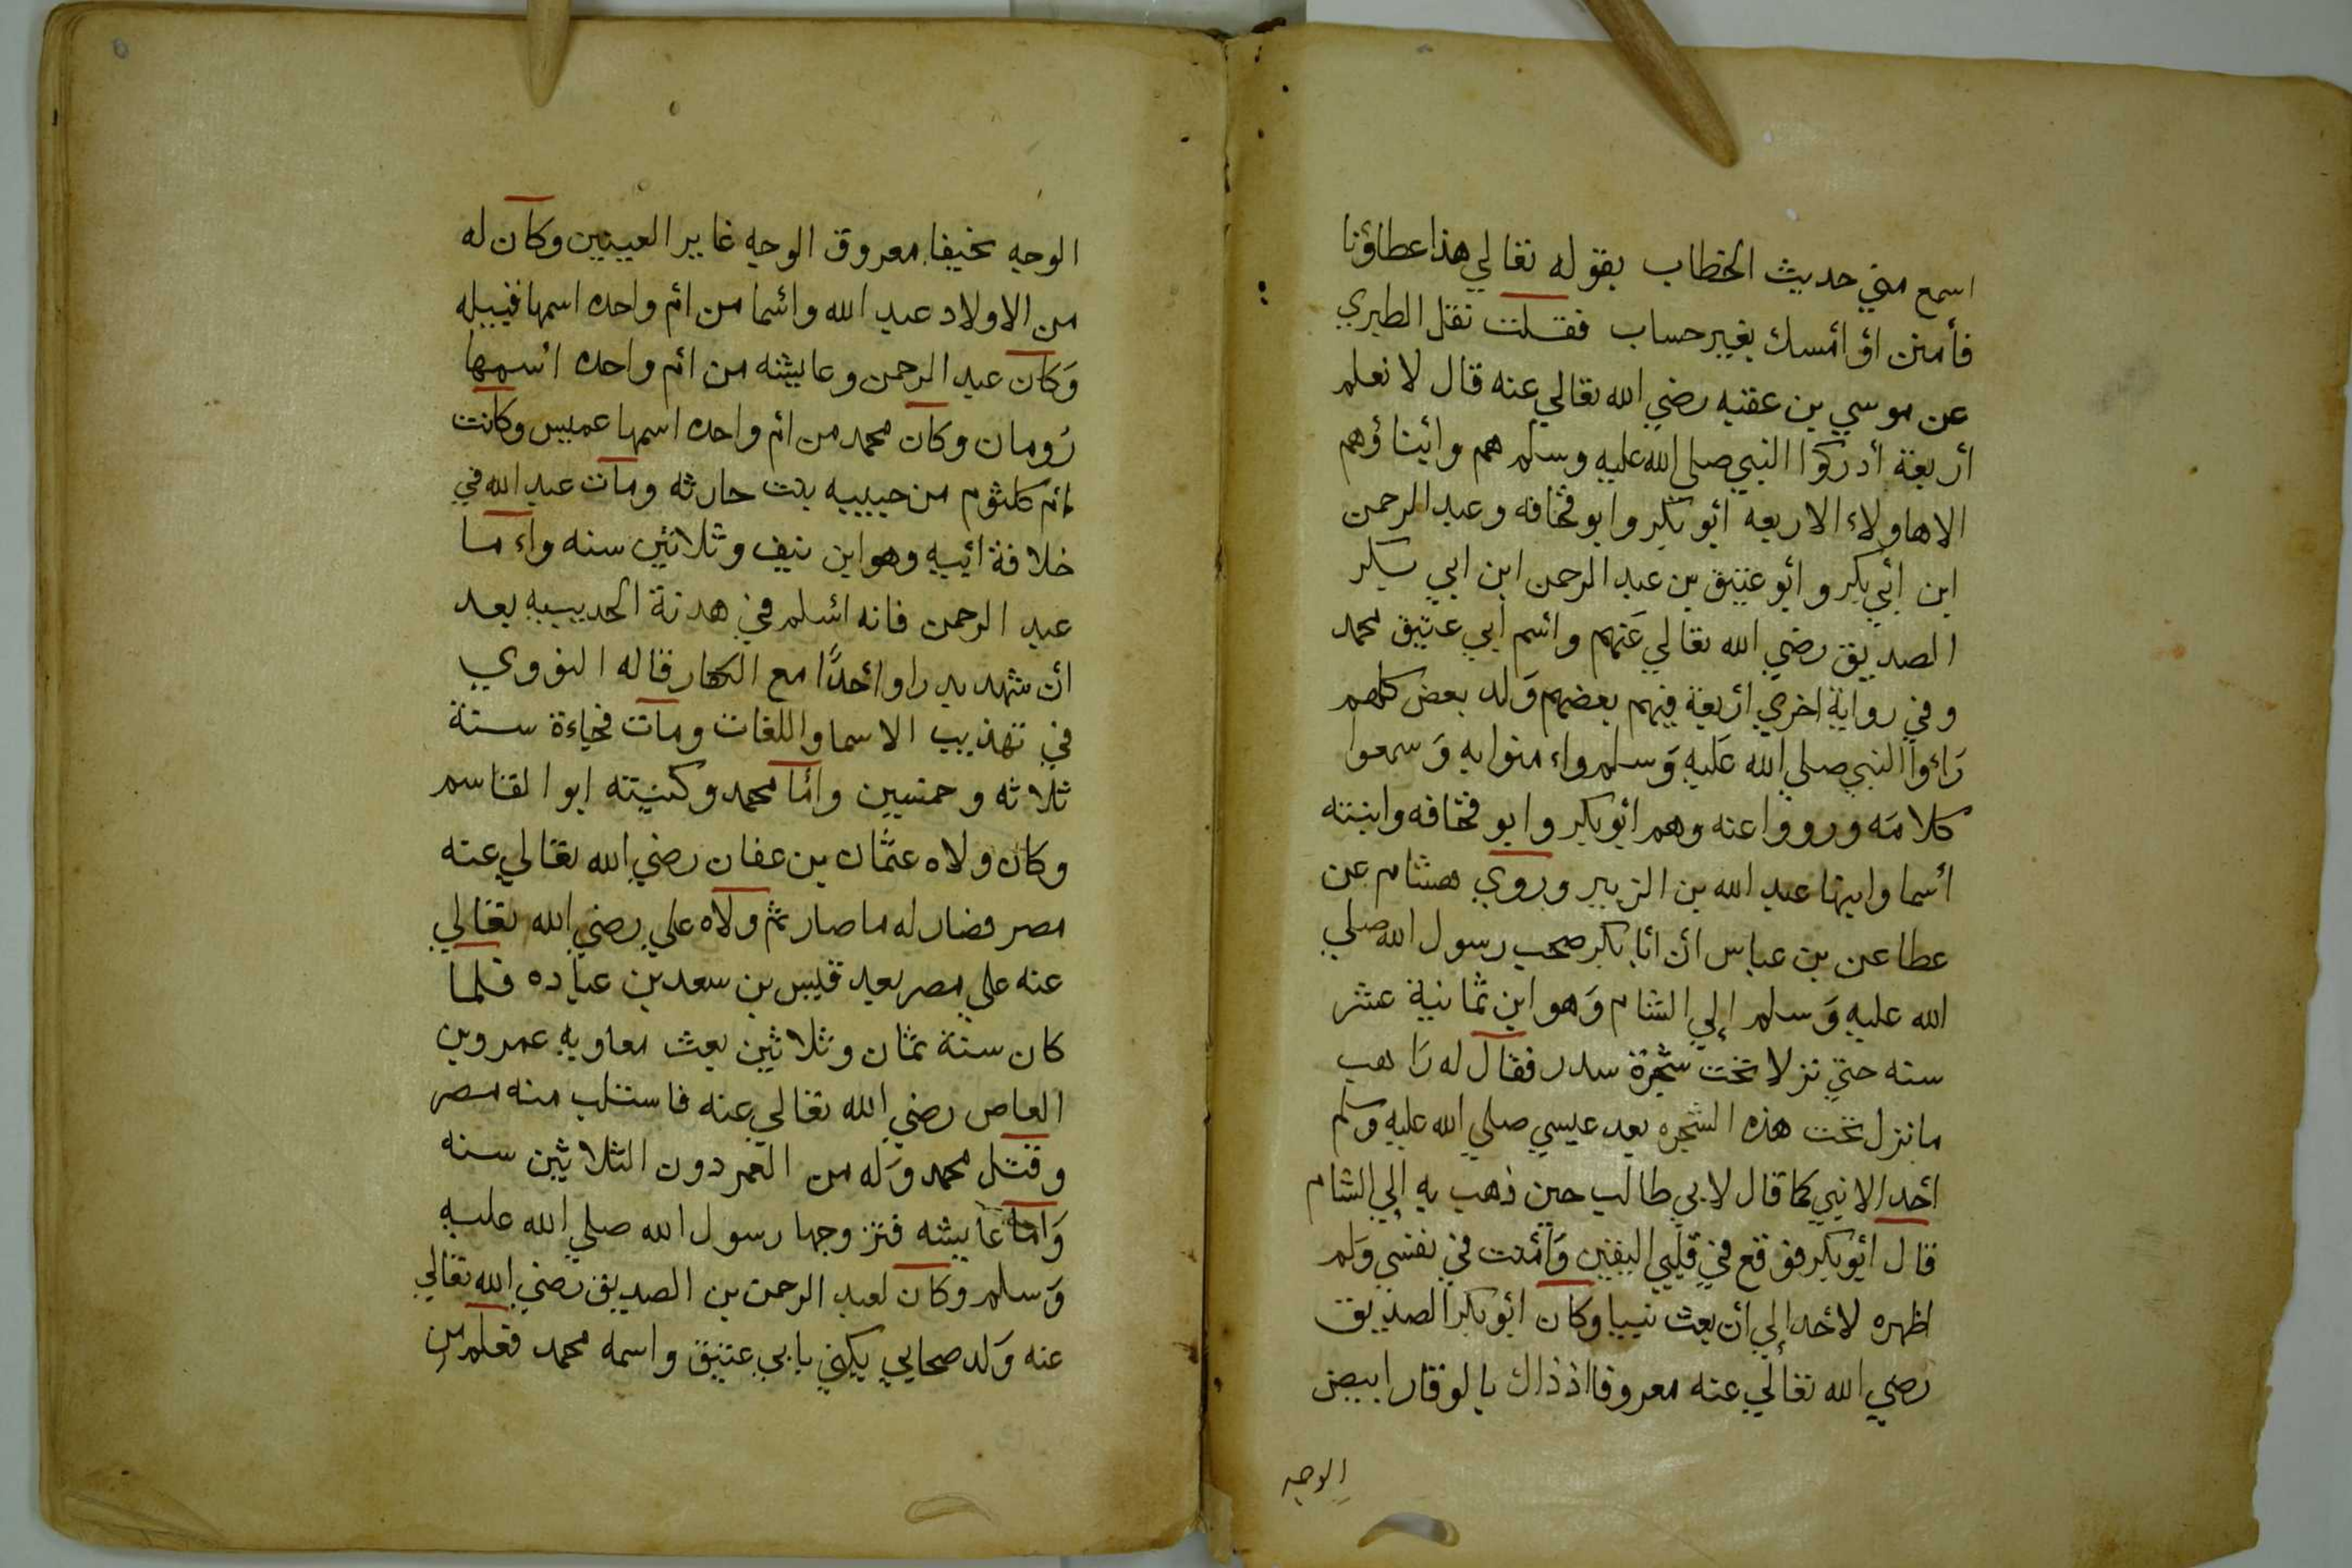 اسمع مني حديث الخطاب بقوله تعالي هذا عطاؤنا
فأمنن أو أمسك بغير حساب فقلت نقل الطبري
عن موسي بن عقبه رضي الله تعالي عنه قال لا نعلم
أربعة أدركوا النبي صلي الله عليه وسلم هم وابناؤهم
الا هاولاء الاربعه ابو بكر وابو قحافه وعبد الرحمن
ابن أبي بكر وابو عتيق بن عبد الرحمن ابن ابي بكر
الصديق رضي الله تعالي عنهم واسم أبي عتيق محمد
وفي رواية اخري أربعة فيهم بعضهم وَلد بعض كلهم
رَاءوا النبي صلي الله عَليه وَسلم واءمنوا به وَسمعوا
كلامَه ورووا عنه وهم ابو بكر وابو قحافه وابنته
أسما وابنها عبد الله بن الزبير وروي هشام عن
عطا عن بن عباس أن ابا بكر صحب رسول الله صلي
الله عليه وَسلم إلي الشام وَهو ابن ثمانية عشر
سنه حتي نزلا تحت شجرة سدر فقال له رَاهب
ما نزل تحت هذه الشجره بعد عيسي صلي الله عليه وسلم
أحد الا نبي كما قال لابي طالب حين ذهب به إلي الشام
قال ابو بكر فوقع في قلبي اليقين وَآمنت في نفسي وَلم
اظهره لأحد إلي أن بعث نبيا وكان ابو بكر الصديق
رضي الله تعالي عنه معروفا اذ ذاك بالوقار ابيض
الوجه
الوجه نحيفا معروق الوجه غاير العينين وكان له
من الاولاد عبد الله واسما من ام واحده اسمها قتيله
وَكان عبد الرحمن وعايشه من ام واحده اسمها
رُومان وكان محمد من ام واحده اسمها عميس وكانت
ام كلثوم من حبيبه بنت حارثه ومات عبد الله في
خلافة ابيه وهو ابن نيف وثلاثين سنه واءما
عبد الرحمن فانه اسلم في هدنة الحديبيه بعد
ان شهد بدرا وأحدًا مع الكفار قاله النووي
في تهذيب الاسما واللغات ومات فجاءة سنة
ثلاثه وخمسين واما محمد وكنيته ابو القاسم
وكان ولاه عثمان بن عفان رضي الله تعالي عنه
مصر فصار له ما صار ثم ولاه علي رضي الله تعالي
عنه علي مصر بعد قيس بن سعد بن عباده فلما
كان سنة ثمان وثلاثين بعث معاويه عمرو بن
العاص رضي الله تعالي عنه فاستلب منه مصر
وقتل محمد وَله من العمر دون الثلاثين سنه
وَاما عايشه فتزوجها رسول الله صلي الله عليه
وَسلم وكان لعبد الرحمن بن الصديق رضي الله تعالي
عنه وَلد صحابي يكني بابي عتيق واسمه محمد فعلم من